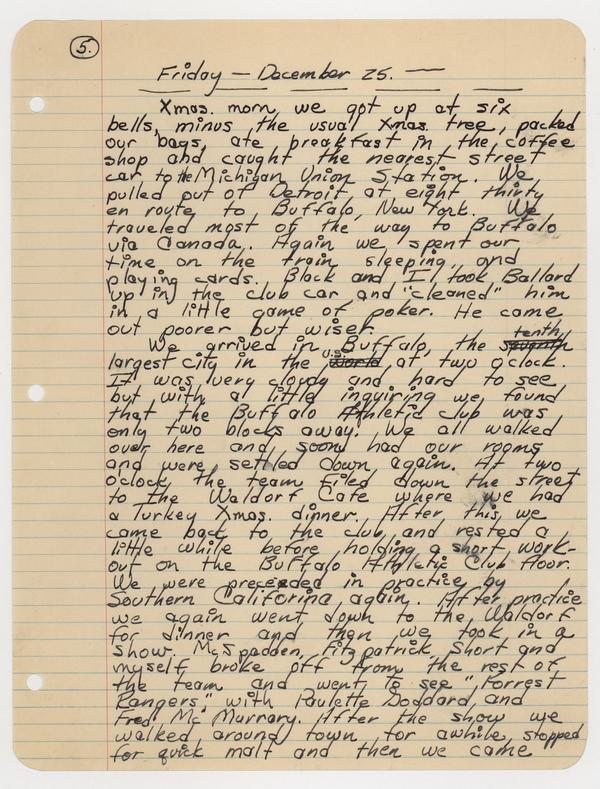 5.
Friday — December 25. —
Xmas. morn, we got up at six
bells, minus the usual Xmas. tree, packed
our bags, ate breakfast in the coffee
shop and caught the nearest street
car to the Michigan Union Station. We
pulled out of Detroit at eight thirty
en route to Buffalo, New York. We
traveled most of the way to Buffalo
via Canada. Again we spent our
time on the train sleeping, and
playing cards. Black and I took Ballard
up in the club car and "cleaned" him
in a little game of poker. He came
out poorer but wiser.
We arrived in Buffalo, the seventh tenth
largest city in the world U.S. at two o'clock.
It was very cloudy and hard to see
but with a little inquiring we found
that the Buffalo Athletic club was
only two blocks away. We all walked
over here and soon had our rooms
and were settled down again. At two
o'clock the team filed down the street
to the Waldorf Cafe where we had
a Turkey Xmas. dinner. After this, we
came back to the club and rested a
little while before holding a short work-
out on the Buffalo Athletic Club floor.
We were preceeded in practice by
Southern California again. After practice
we again went down to the Waldorf
for dinner and then we took in a
show. McSpadden, Fitzpatrick, Short and
myself broke off from the rest of
the team and went to see "Forrest
Rangers" with Paulette Goddard and
Fred McMurrary. After the show we
walked around town for awhile, stopped
for quick malt and then we came